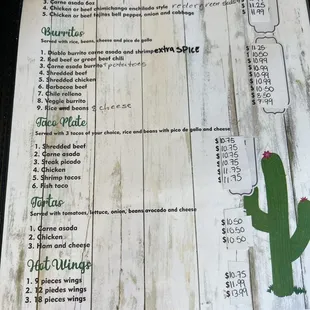 3. Carne asada 6oz
4. Chicken or beef chimichanga enchilada style
5. Chicken or beef fajitas bell pepper, onion and cabbage
$ 11.25
$ 11.99
Burritos
Served with rice, beans, cheese and pico de gallo
1. Diablo burrito carne asada and shrimp extra SPICE
2. Red beef or green beef chili
3. Carne asada burrito & potatoes
4. Shredded beef
5. Shredded chicken
6. Barbacoa beef
7. Chile relleno
8. Veggie burrito
9. Rice and beans & cheese
$ 11.25
$ 10.50
$ 10.99
$ 10.99
$ 10.99
$ 10.50
$ 7.99
Taco Plate
Served with 3 tacos of your choice, rice and beans with pico de gallo and cheese
1. Shredded beef
2. Carne asada
3. Steak picado
4. Chicken
5. Shrimp tacos
6. Fish taco
$10.75
$10.75
$10.75
$10.75
$11.75
$11.75
Tortas
Served with tomatoes, lettuce, onion, beans avocado and cheese
1. Carne asada
2. Chicken
3. Ham and cheese
$10.50
$10.50
$10.50
Hot Wings
1. 9 pieces wings
2. 12 piedes wings
3. 18 pieces wings
$10.75
$11.99
$13.99